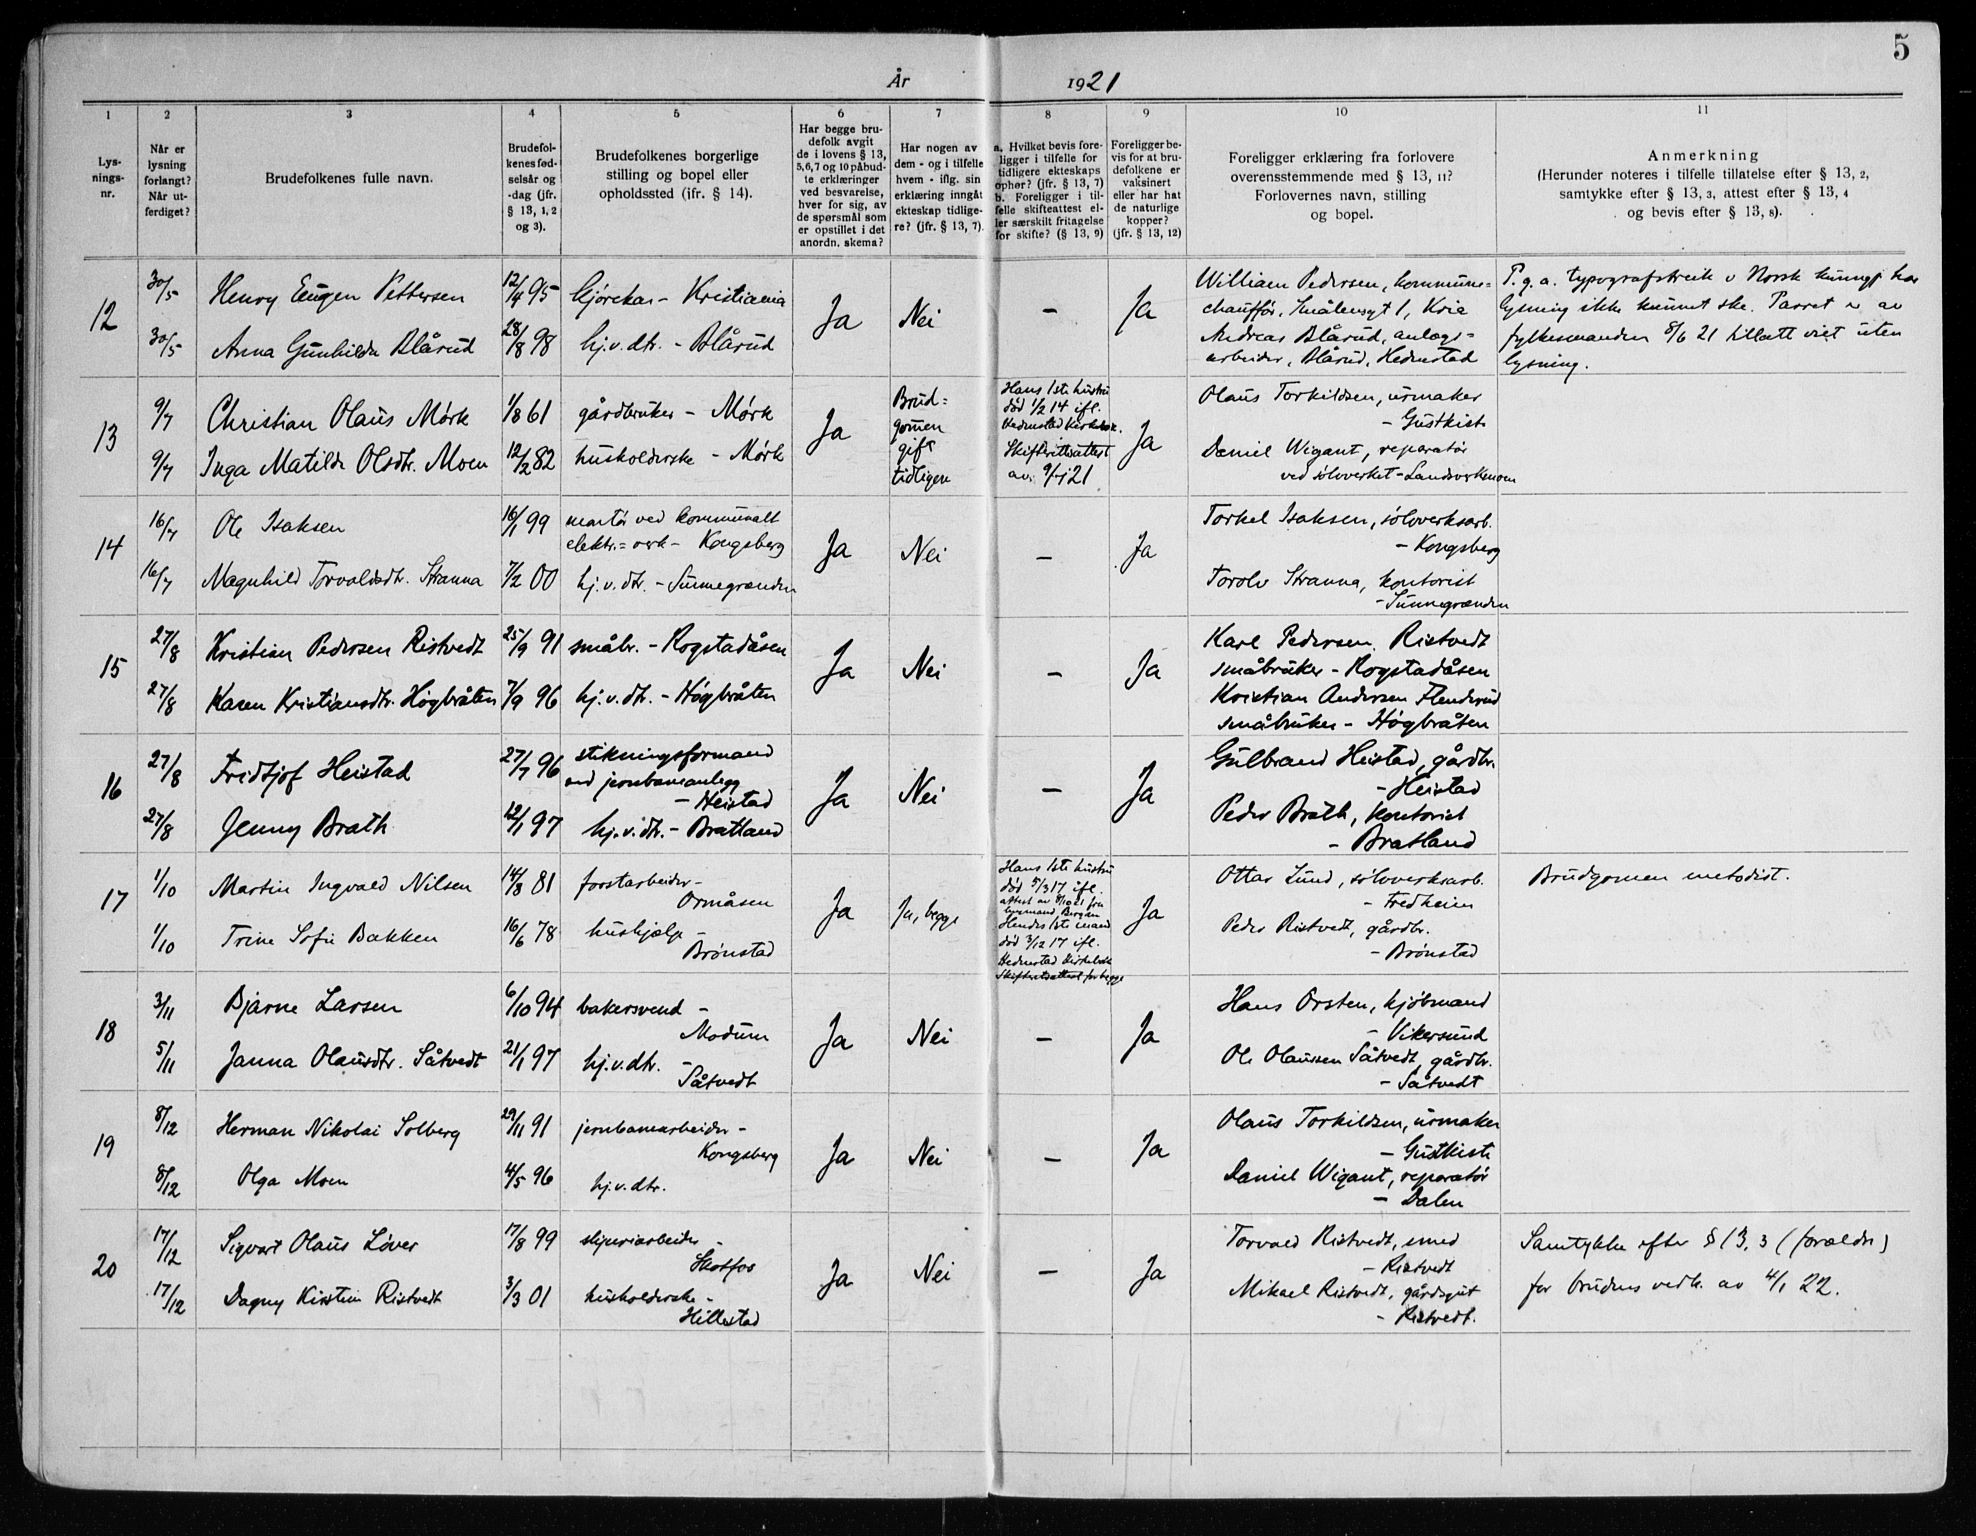 5
År 1921
1 2 3 4 5 6 7 8 9 10 11
Lys-
nings-
nr.
Når er
lysning
forlangt?
Når ut-
ferdiget?
Brudefolkenes fulle navn.
Brudefol-
kenes fød-
selsår og
-dag (jfr.
§ 13, 1, 2
og 3).
Brudefolkenes borgerlige
stilling og bopel eller
opholdssted (ifr. § 14).
Har begge bru-
defolk avgit
de i lovens § 13,
5,6,7 og 10 påbud-
te erklæringer
ved besvarelse,
hver for sig, av
de spørsmål som
er opstillet i det
anordn. skema?
Har nogen av
dem - og i tilfelle
hvem - iflg. sin
erklæring inngåt
ekteskap tidlige-
re? (jfr. § 13, 7).
a. Hvilket bevis fore-
ligger i tilfelle for
tidligere ekteskaps
ophør? (jfr. § 13, 7)
b. Foreligger i til-
felle skifteattest el-
ler særskilt fritagelse
for skifte? (§ 13, 9)
Foreligger be-
vis for at bru-
defolkene er
vaksinert
eller har hat
de naturlige
kopper?
(jfr. § 13, 12)
Foreligger erklæring fra forlovere
overensstemmende med § 13, 11?
Forlovernes navn, stilling
og bopel.
Anmerkning
(Herunder noteres i tilfelle tillatelse efter § 13, 2,
samtykke efter § 13, 3, attest efter § 13, 4
og bevis efter § 13, 8).
12
30/5 Henry Eugen Pettersen 12/4 95 kjørekar - Kristiania
30/5 Anna Gunhilda Blårud 28/8 98 hj.v.dtr. - Blårud
Ja Nei - Ja
William Pedersen, kommune=
chauffør, Smålensgt 1, Kria
Andreas Blårud, anlægs=
arbeider, Blårud, Hedenstad
P.g.a. typografstreik v Norsk kunngj. har
lysning ikke kunnet ske. Parret er av
fylkesmanden 8/6 21 tillatt viet uten
lysning.
13
9/7 Christian Olaus Mørk 1/8 61 gårdbruker - Mørk
9/7 Inga Matilde Olsdtr. Moen 12/2 82 husholderske - Mørk
Ja
Brud=
gomen
gift
tidligere
Hans 1ste hustru
død 1/2 14 ifl.
Hedenstad kirkebok.
Skifterettsattest
av 9/7 21
Ja
Olaus Torkildsen, urmaker
- Gustkist
Daniel Wigant, reparatør
ved sølvverket - Landsverkmoen
14
16/7 Ole Isaksen 16/1 99 montør ved kommunalt
elektr.= verk - Kongsberg
16/7 Magnhild Torvaldsdtr. Stranna 7/2 00 hj.v.dtr. - Sunnegrenden
Ja Nei - Ja
Torkel Isaksen, sølvverksarb.
- Kongsberg
Torolv Stranna, kontorist
- Sunnegrænden
15
27/8 Kristian Pedersen Ristvedt 25/9 91 småbr. - Rogstadåsen
27/8 Karen Kristiansdtr. Høgbråten 7/9 96 hj.v.dtr. - Høgbråten
Ja Nei - Ja
Karl Pedersen Ristvedt
småbruker - Rogstadåsen
Kristian Andersen Flenderud
småbruker - Høgbråten
16
27/8 Fridtjof Heistad 27/7 96 stikningsformand
ved jernbaneanlegg
- Heistad
27/8 Jenny Brath 12/1 97 hj.v.dtr. - Bratland
Ja Nei - Ja
Gulbrand Heistad, gårdbr.
- Heistad
Peder Brath, kontorist
- Bratland
17
1/10 Martin Ingvald Nilsen 14/8 81 forstarbeider -
Ormåsen
1/10 Trine Sofie Bakken 16/6 78 hushjelp -
Brønstad
Ja Ja, begge
Hans 1ste hustru
død 5/3 17 ifl.
attest av 1/10 21 fra
Hendes 1ste mand
død 3/12 17 ifl.
Hedenstad kirkebok
Skifterettsattest for begge
Ja
Ottar Lund, sølvverksarb.
- Fredheim
Peder Ristvedt, gårdbr.
- Brønstad
Brudgomen metodist.
18
3/11 Bjarne Larsen 6/10 94 bakersvend -
Modum
5/11 Janna Olausdtr. Såtvedt 21/1 97 hj.v.dtr. -
Såtvedt
Ja Nei - Ja
Hans Orsten, kjøbmand
- Vikersund
Ole Olaussen Såtvedt, gårdbr.
- Såtvedt
19
8/12 Herman Nikolai Solberg 29/11 91 jernbanearbeider -
Kongsberg
8/12 Olga Moen 4/5 96 hj.v.dtr.
Ja Nei - Ja
Olaus Torkildsen, urmaker
- Gustkist
Daniel Wigant, reparatør
- Dalen
20
17/12 Sigvart Olaus Løver 17/8 99 sliperiarbeider -
Skotfos
17/12 Dagny Kirstine Ristvedt 3/3 01 husholderske -
Hillestad
Ja Nei - Ja
Torvald Ristvedt, smed
- Ristvedt
Mikael Ristvedt, gårdsgut
- Ristvedt.
Samtykke efter § 13, 3 (forældre)
for brudens vedk. av 4/1 22.